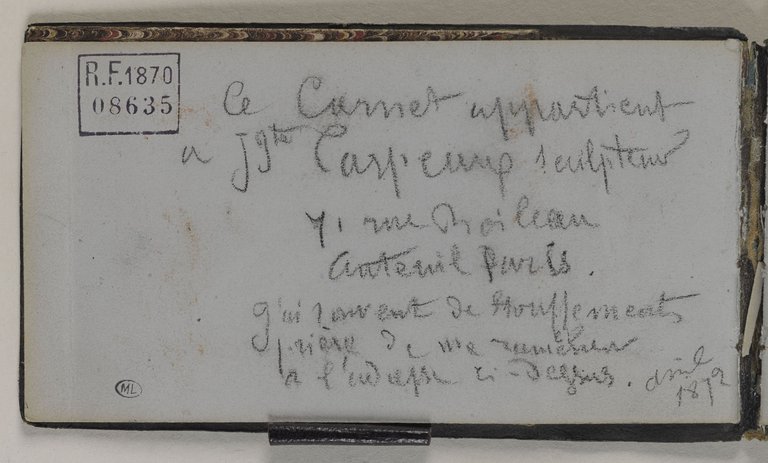 R.F.1870
08635
Ce Carnet appartient
a Jⁿᵗᵉ Carpeaux sculpteur
71 rue Boileau
Auteuil Paris.
j'ai souvent de étouffements
prière de me ramener
a l'adresse ci-dessus. avril
1872
ML